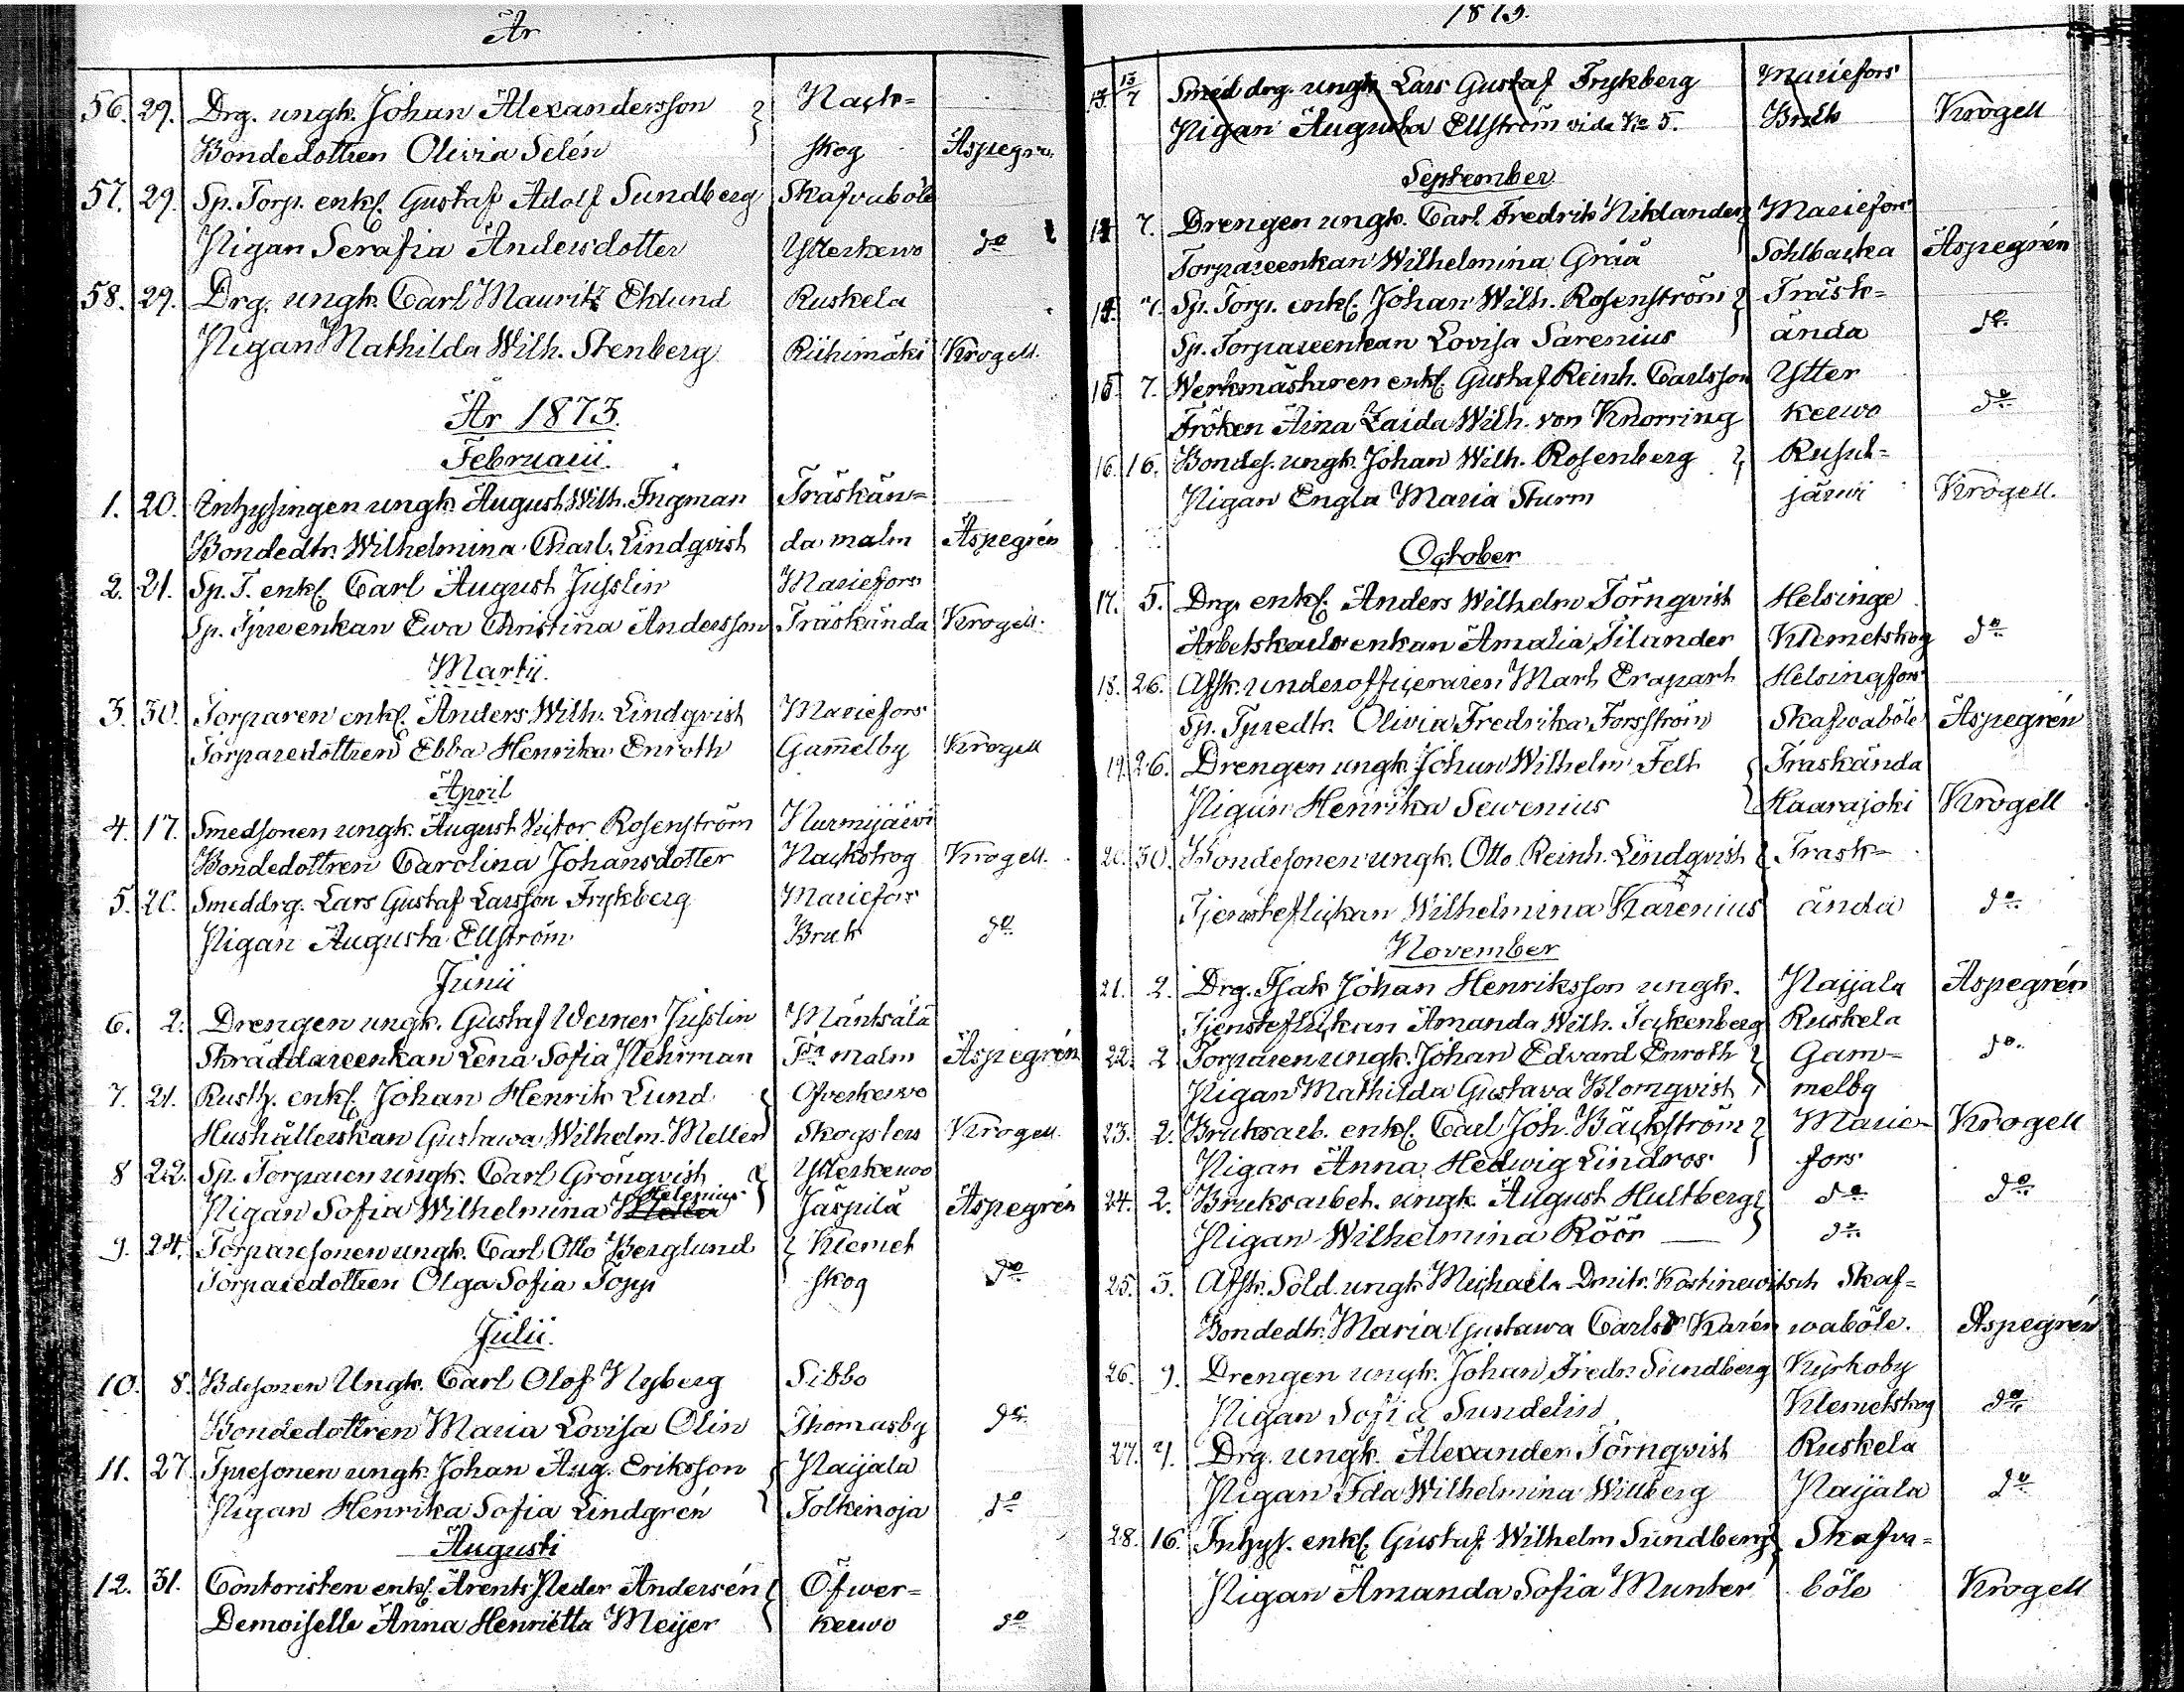 År
56. 29. Drg. ungk. Johan Alexandersson } Nack=
Bondedottren Olivia Selén skog Aspegrén
57. 29. Sp. Torp. enkl. Gustaf Adolf Sundberg Skafvaböle
Pigan Serafia Andersdotter Ytterkervo do
58. 29. Drg. ungk. Carl Mauritz Eklund Ruskela
Pigan Mathilda Wilh. Stenberg Riihimäki Krogell.
År 1873.
Februarii.
1. 20. Inhysingen ungk. August Wilh. Ingman Träskän=
Bondedtr. Wilhelmina Charl. Lindqvist da malm Aspegrén
2. 21. Sp. T. enkl. Carl August Jusslin Mariefors
Sp. Tpreenkan Ewa Christina Andersson Träskända Krogell.
Martii.
3. 30. Torparen enkl. Anders Wilh. Lindqvist Mariefors
Torparedottren Ebba Henrika Enroth Gam̄elby Krogell
April
4. 17. Smedsonen ungk. August Victor Rosenström Nurmijärvi
Bondedottren Carolina Johansdotter Nackskog Krogell.
5. 20. Smeddrg. Lars Gustaf Larsson Frykberg Mariefors
Pigan Augusta Ellström Bruk do
Junii
6. 2. Drengen ungk. Gustaf Werner Jusslin Mäntsälä
Skräddareenkan Lena Sofia Nehrman Tra malm Aspegrén
7. 21. Rusth. enkl. Johan Henrik Lund } Ofverkervo
Hushållerskan Gustawa Wilhelm. Meller Skogsters Krogell.
8 22. Sp. Torparen ungk. Carl Grönqvist } Ytterkervo
Pigan Sofia Wilhelmina Helenius Jäspilä Aspegrén
9. 24. Torparesonen ungk. Carl Otto Berglund } Klemet
Torparedottren Olga Sofia Topp skog do
Julii.
10. 8. Bdesonen Ungk. Carl Olof Nyberg Sibbo
Bondedottren Maria Lovisa Olin Thomasby do
11. 27. Tpresonen ungk. Johan Aug. Eriksson { Naijala
Pigan Henrika Sofia Lindgrén Tolkinoja do
Augusti
12. 31. Contoristen enkl. Arents Peder Andersén { Öfwer=
Demoiselle Anna Henrietta Meijer kerwo do
1873.
13. 13/7 Smed drg. ungk. Lars Gustaf Frykberg Mariefors
Pigan Augusta Ellström vide No 5. Bruk Krogell
September
14 7. Drengen ungk. Carl Fredrik Niklander } Mariefors
Torpareenkan Wilhelmina Grää Sohlbacka Aspegrén
14. 7. Sp. Torp. enkl. Johan Wilh. Rosenström } Träsk=
Sp. Torpareenkan Lovisa Sarenius ända do.
15. 7. Werkmästaren enkl. Gustaf Reinh. Carlsson Ytter
Fröken Aina Zaida Wilh. von Knorring kerwo do
16. 16. Bondes. ungk. Johan Wilh. Rosenberg } Rusut=
Pigan Engla Maria Sturm järwi Krogell.
October
17. 5. Drg. enkl. Anders Wilhelm Törnqvist Helsinge
Arbetskarlsenkan Amalia Silander Klemetskog do
18. 26. Afsk. underofficeraren Mart Erapart Helsingfors
Sp. Tpredtr. Olivia Fredrika Forsström Skafwaböle Aspegrén
19. 26. Drengen ungk. Johan Wilhelm Felt { Träskända
Pigan Henrika Sewenius Haarajoki Krogell
20. 30. Bondesonen ungk. Otto Reinh. Lindqvist { Träsk=
Tjensteflickan Wilhelmina Karenius ända do.
November
21. 2. Drg. Isak Johan Henriksson ungk. Naijala Aspegrén
Tjensteflickan Amanda Wilh. Tackenberg Ruskela
22. 2 Torparen ungk. Johan Edvard Enroth } Gam= do.
Pigan Mathilda Gustava Blomqvist melby
23. 2. Bruksarb. enkl. Carl Joh. Bäckström } Marie- Krogell
Pigan Anna Hedwig Lindros fors
24. 2. Bruksarbet. ungk. August Hultberg } do do
Pigan Wilhelmina Röör do
25. 3. Afsk. Sold. ungk. Michaila Dmitr. Kostinewitsch Skaf=
Bondedtr. Maria Gustawa Carlsdr Karén waböle. Aspegrén
26. 9. Drengen ungk. Johan Fredr. Sundberg Kyrkoby
Pigan Sofia Sundelin Klemetskog do
27. 9. Drg. ungk. Alexander Törnqvist Ruskela
Pigan Ida Wilhelmina Willberg Naijala do
28. 16. Inhys. enkl. Gustaf Wilhelm Sundberg } Skafva=
Pigan Amanda Sofia Munter böle Krogell